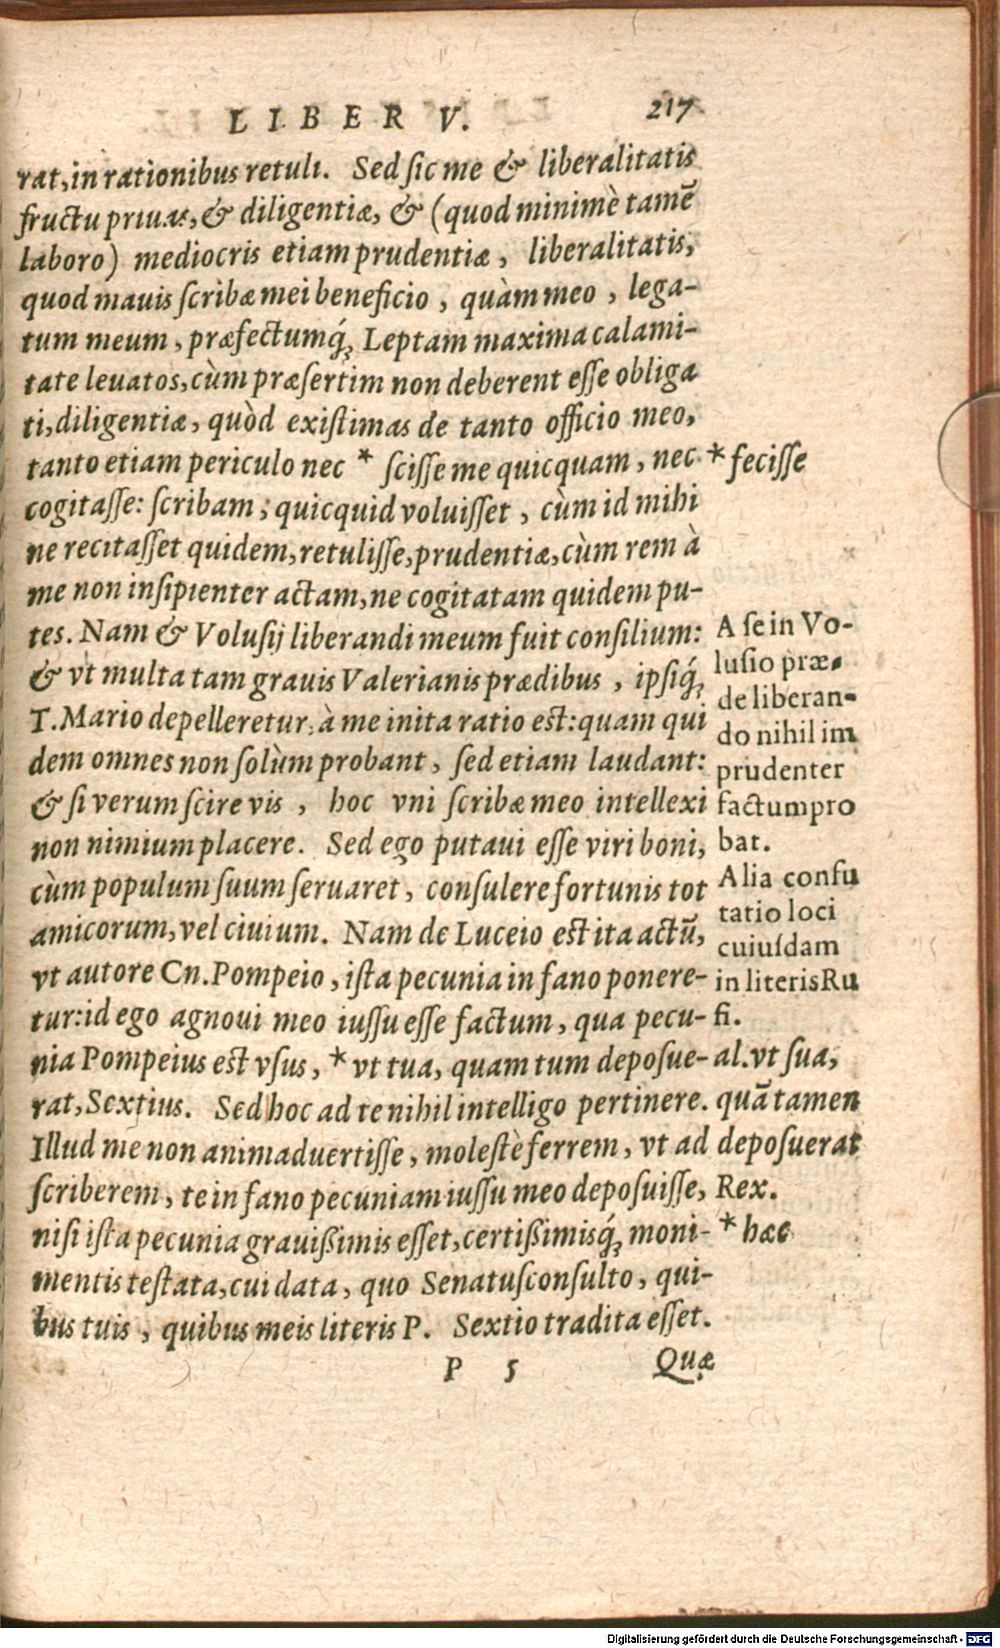 LIBER V. 217
rat, in rationibus retuli. Sed sic me & liberalitatis
fructu priuas, & diligentiæ, & (quod minimè tamē
laboro) mediocris etiam prudentiæ, liberalitatis,
quod mauis scribæ mei beneficio, quàm meo, lega-
tum meum, præfectumq́; Leptam maxima calami-
tate leuatos, cùm præsertim non deberent esse obliga
ti, diligentiæ, quòd existimas de tanto officio meo,
tanto etiam periculo nec * scisse me quicquam, nec
cogitasse: scribam; quicquid voluisset, cùm id mihi
ne recitasset quidem, retulisse, prudentiæ, cùm rem à
me non insipienter actam, ne cogitatam quidem pu-
tes. Nam & Volusij liberandi meum fuit consilium:
& vt multa tam grauis Valerianis prædibus, ipsiq́;
T. Mario depelleretur, à me inita ratio est: quam qui
dem omnes non solùm probant, sed etiam laudant:
& si verum scire vis, hoc vni scribæ meo intellexi
non nimium placere. Sed ego putaui esse viri boni,
cùm populum suum seruaret, consulere fortunis tot
amicorum, vel ciuium. Nam de Luceio est ita actū,
vt autore Cn. Pompeio, ista pecunia in fano ponere-
tur: id ego agnoui meo iussu esse factum, qua pecu-
nia Pompeius est vsus, * vt tua, quam tum deposue-
rat, Sextius. Sed hoc ad te nihil intelligo pertinere.
Illud me non animaduertisse, molestè ferrem, vt ad
scriberem, te in fano pecuniam iussu meo deposuisse,
nisi ista pecunia grauißimis esset, certißimisq́; moni-
mentis testata, cui data, quo Senatusconsulto, qui-
bus tuis, quibus meis literis P. Sextio tradita esset.
P 5 Quæ
* fecisse
A se in Vo-
lusio præ-
de liberan-
do nihil im
prudenter
factum pro
bat.
Alia confu
tatio loci
cuiusdam
in literis Ru
fi.
al. vt sua,
quā tamen
deposuerat
Rex.
* hæc
Digitalisierung gefördert durch die Deutsche Forschungsgemeinschaft - DFG